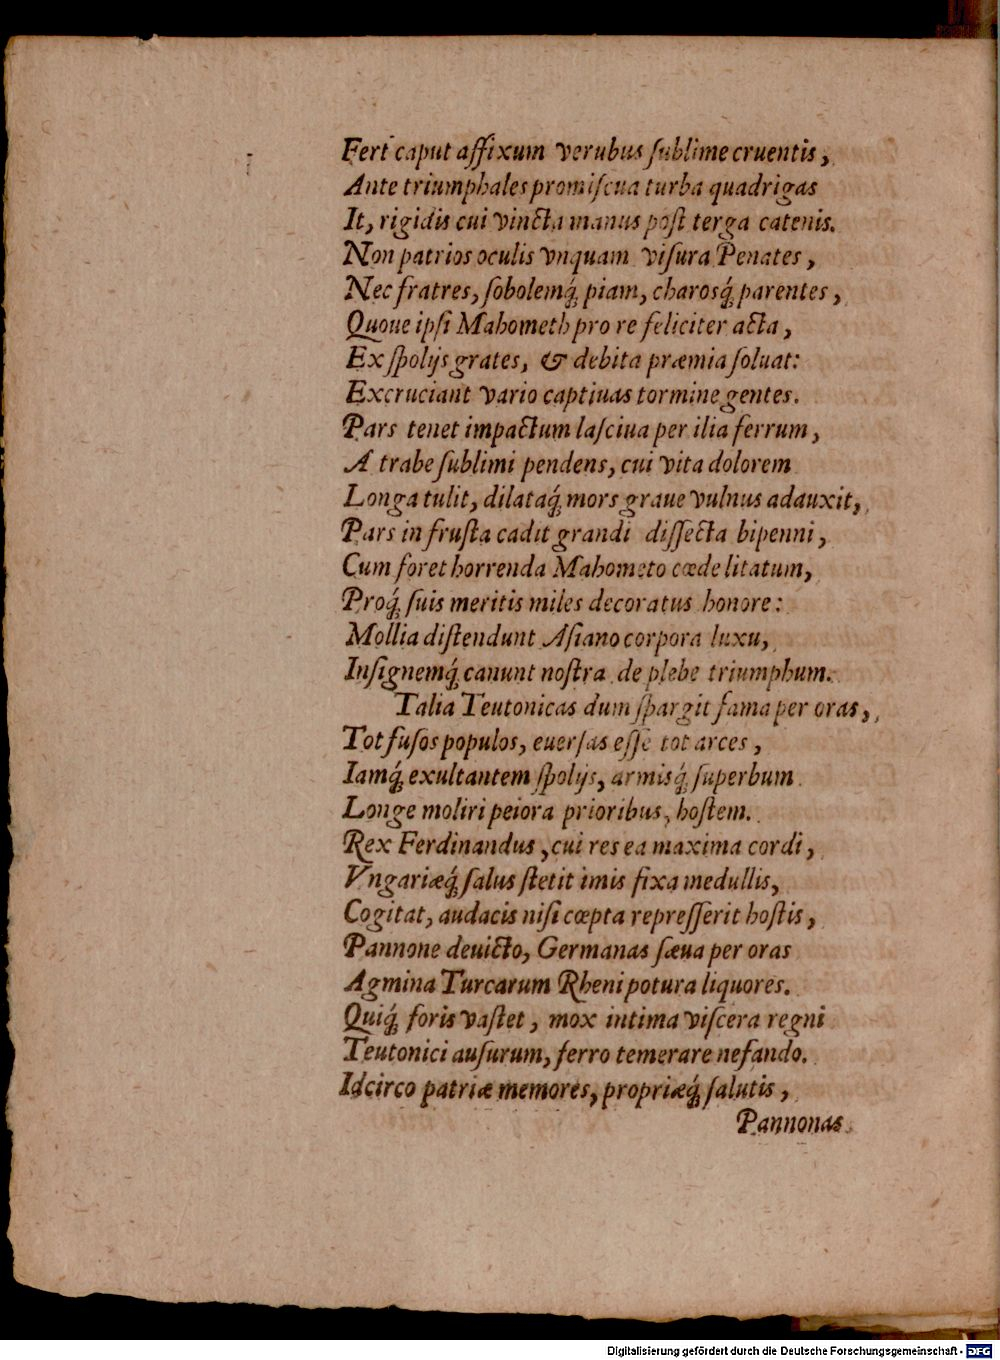 Fert caput affixum verubus ſublime cruentis,
Ante triumphales promiſcua turba quadrigas
It, rigidis cui vincta manus poſt terga catenis.
Non patrios oculis vnquam viſura Penates,
Nec fratres, ſobolemq́; piam, charosq́; parentes,
Quoue ipſi Mahometh pro re feliciter acta,
Ex ſpolijs grates, & debita præmia ſoluat:
Excruciant vario captiuas tormine gentes.
Pars tenet impactum laſciua per ilia ferrum,
A trabe ſublimi pendens, cui vita dolorem
Longa tulit, dilataq́; mors graue vulnus adauxit,
Pars in fruſta cadit grandi diſſecta bipenni,
Cum foret horrenda Mahometo cœde litatum,
Proq́; ſuis meritis miles decoratus honore:
Mollia diſtendunt Aſiano corpora luxu,
Inſignemq́; canunt noſtra de plebe triumphum.
Talia Teutonicas dum ſpargit fama per oras,
Tot fuſos populos, euerſas eſſe tot arces,
Iamq́; exultantem ſpolijs, armisq́; ſuperbum
Longe moliri peiora prioribus, hoſtem.
Rex Ferdinandus, cui res ea maxima cordi,
Vngariæq́; ſalus ſtetit imis fixa medullis,
Cogitat, audacis niſi cœpta repreſſerit hoſtis,
Pannone deuicto, Germanas ſæua per oras
Agmina Turcarum Rheni potura liquores.
Quiq́; foris vaſtet, mox intima viſcera regni
Teutonici auſurum, ferro temerare nefando.
Idcirco patriæ memores, propriæq́; ſalutis,
Pannonas
Digitalisierung gefördert durch die Deutsche Forschungsgemeinschaft - DFG